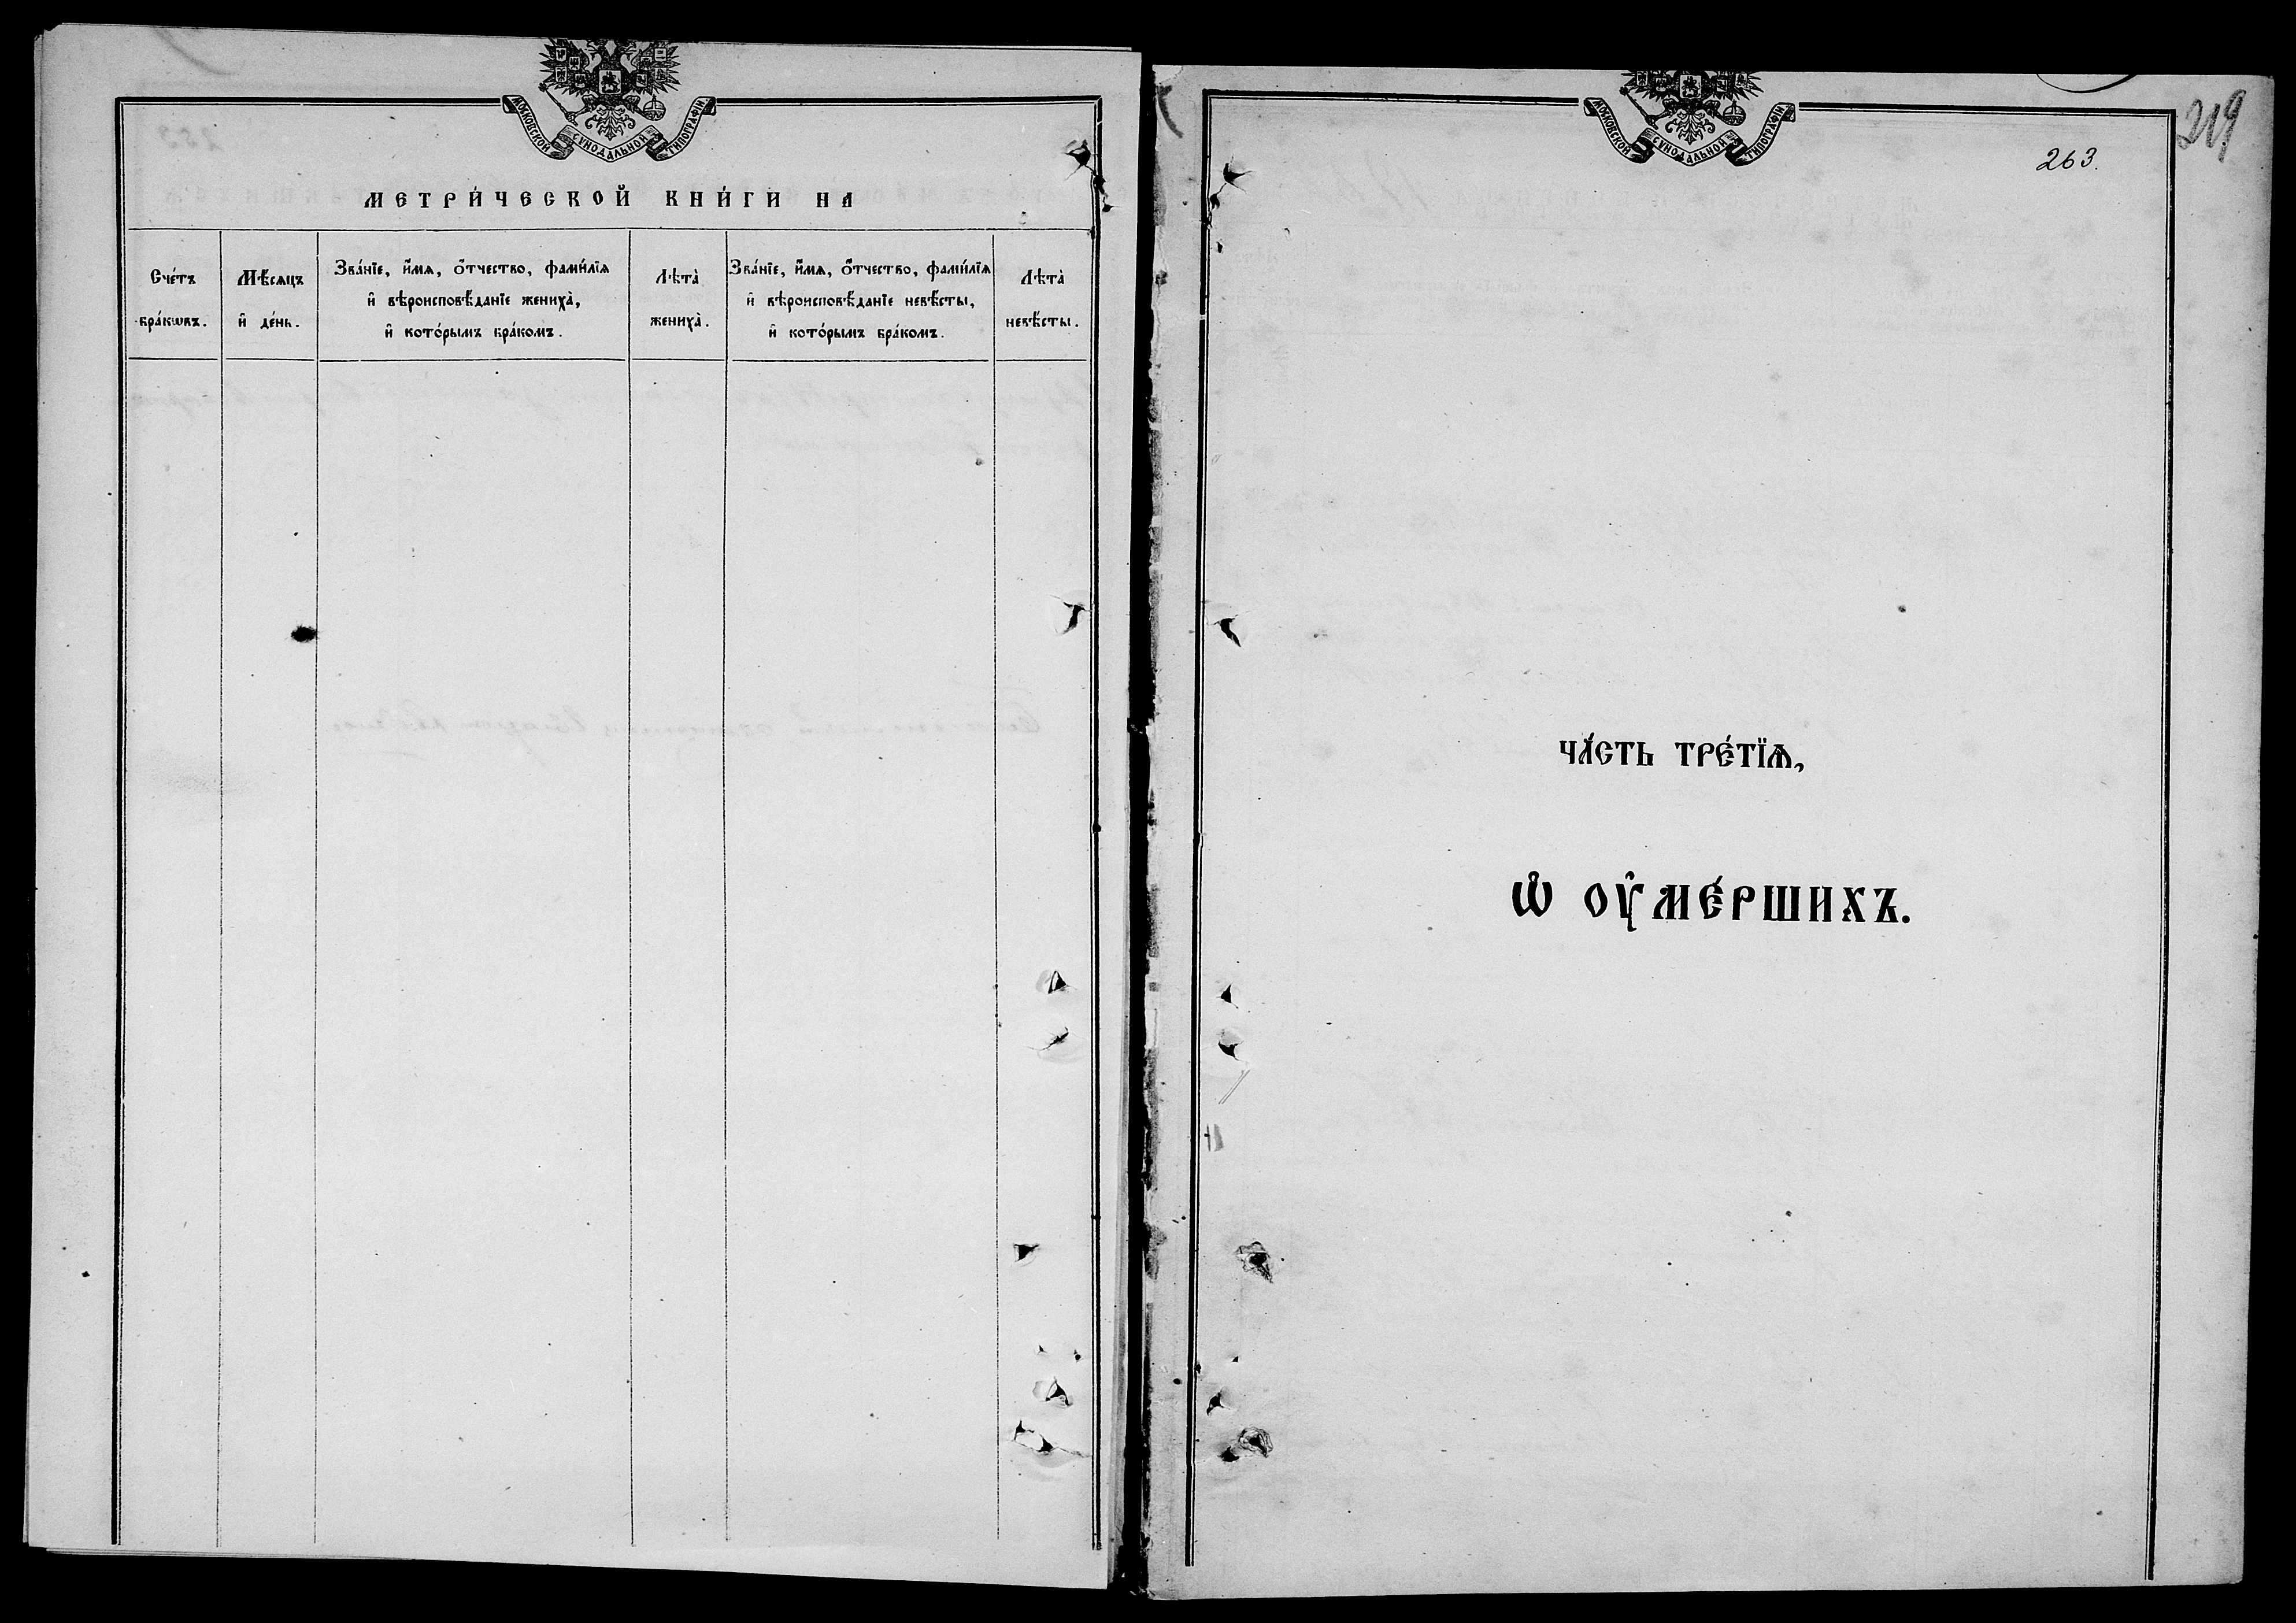 МОСКОВСКОЙ СѴНОДАЛЬНОЙ ТИПОГРАФІИ.
МЕТРИ́ЧЕСКОЙ КНИ́ГИ НА
Сче́тъ
бра́кѡвъ.
Мѣ́сяцъ
и҆ де́нь.
Зва́нїе, и҆́мя, ѻ҆́тчество, фами́лїя
и҆ вѣроисповѣ́данїе жениха̀,
и҆ кото́рымъ бра́комъ.
Лѣта̀
жениха̀.
Зва́нїе, и҆́мя, ѻ҆́тчество, фами́лїя
и҆ вѣроисповѣ́данїе невѣ́сты,
и҆ кото́рымъ бра́комъ.
Лѣта̀
невѣ́сты.
МОСКОВСКОЙ СѴНОДАЛЬНОЙ ТИПОГРАФІИ.
219
263.
ЧА́СТЬ ТРЕ́ТЇѦ,
Ѡ҆ ОУ҆МЕ́РШИХЪ.